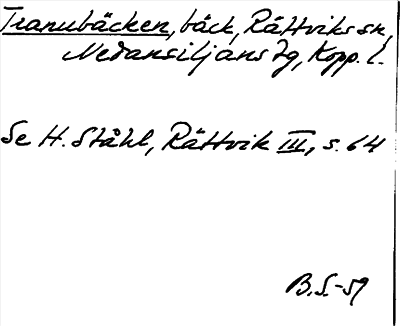 Tranubäcken, bäck, Rättviks sn,
Nedansiljans dg, Kopp. l.
Se H. Ståhl, Rättvik III, s. 64
B.S.-59